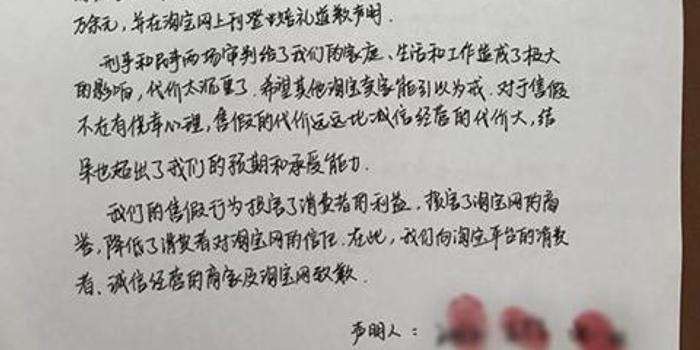 万余元，并在淘宝网上刊登赔礼道歉声明．
刑事和民事两场审判给了我们的家庭、生活和工作造成了极大
的影响，代价太沉重了．希望其他淘宝卖家能引以为戒．对于售假
不在有侥幸心理，售假的代价远远比诚信经营的代价大，结
果也超出了我们的预期和承受能力．
我们的售假行为损害了消费者的利益，损害了淘宝网的商
誉，降低了消费者对淘宝网的信任．在此，我们向淘宝平台的消费
者、诚信经营的商家及淘宝网致歉．
声明人：